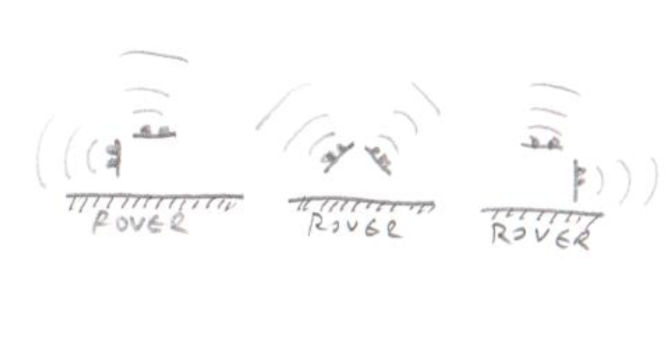 ROVER
ROVER
ROVER